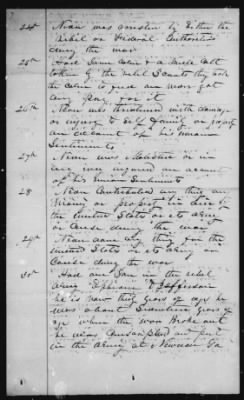 24th Never was arrested by Either the
Rebel or Federal Authorities
during the war
25th Had Some Corn & a Mule Colt
taken by the rebel Scouts they ask
the Colts to feed an never got
any pay for it
26th Never was threatened with damage
or injury to Self family or property
on account of his Union
Sentiments
27th Never was Molested or in
any way injured on account
of his Union Sentiments
28 Never Contributed any thing in
Money or property in aid of
the United States or its army
or Cause during the war
29th Never done any thing for the
United States its army or
Cause during the war
30th Had one Son in the rebel
army Ephraim T Jefferson
he is now thirty years of age he
was about Seventeen years of
age when the war broke out
he was Conscripted and put
in the army at Newnan Ga